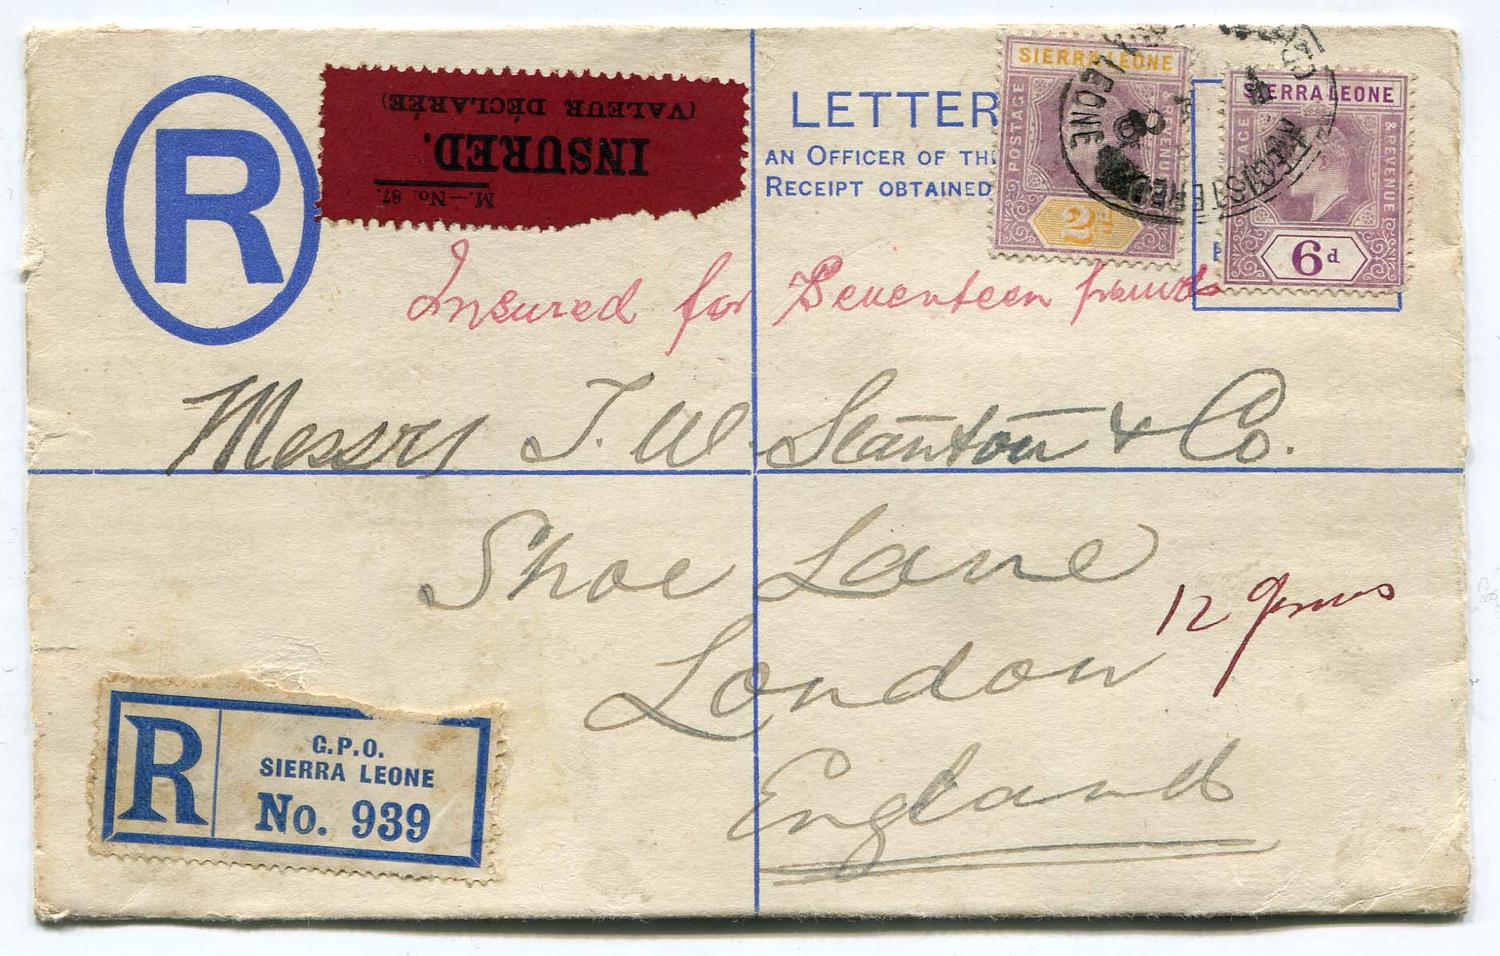 R
(VALEUR DÉCLARÉE)
INSURED.
M.—No. 87.
LETTER
AN OFFICER OF TH
RECEIPT OBTAINED
SIERRA LEONE
POSTAGE
& REVENUE
2d
SIERRA LEONE
POSTAGE
& REVENUE
6d
REGISTERED
LEONE
Insured for Seventeen pounds
Messrs T. W. Stanton & Co.
Shoe Lane
London
England
12 grms
R
G.P.O.
SIERRA LEONE
No. 939